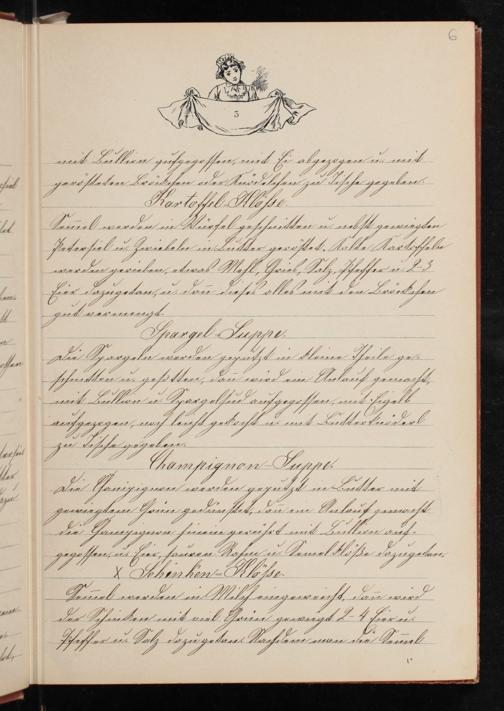 6
3
mit Bullion aufgegossen, mit Ei abgezogen u. mit
gerösteten Brödchen oder Knödelchen zu Tische gegeben.
Kartoffel-Klösse.
Semel werden in Würfel geschnitten u. nebst gewiegten
Petersiel u. Zwiebeln in Butter geröstet. Kalte Kartoffeln
werden gerieben, etwas Mehl, Gries, Salz, Pfeffer u. 2-3
Eier dazugetan, u. dan dieses alles mit den Brödchen
gut vermengt.
Spargel-Suppe.
Die Spargeln werden geputzt in kleine Theile ge-
schnitten u. gesotten, dan wird ein Anlauf gemacht,
mit Bullion u. Spargelsud aufgegossen, mit Eigelb
aufgezogen, noch leicht gekocht u. mit Butterknöderl
zu Tische gegeben.
Champignon-Suppe.
Die Champignon werden geputzt in Butter mit
gewiegtem Grün gedünstet, dan ein Anlauf gemacht
die Champignon hinein gerührt mit Bullion auf-
gegossen, u. Eier, sauren Rahm u. Semel Klösse dazugetan.
x Schinken-Klösse.
Semel werden in Milch eingeweicht, dan wird
der Schinken mit viel Grün gewiegt 2-4 Eier u.
Pfeffer u. Salz dazugetan. Nachdem man die Semel